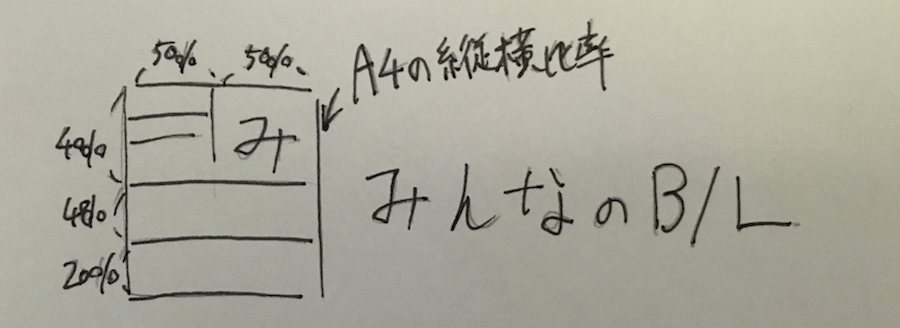 50% 50%
A4の縦横比率
40%
み
みんなのB/L
40%
20%